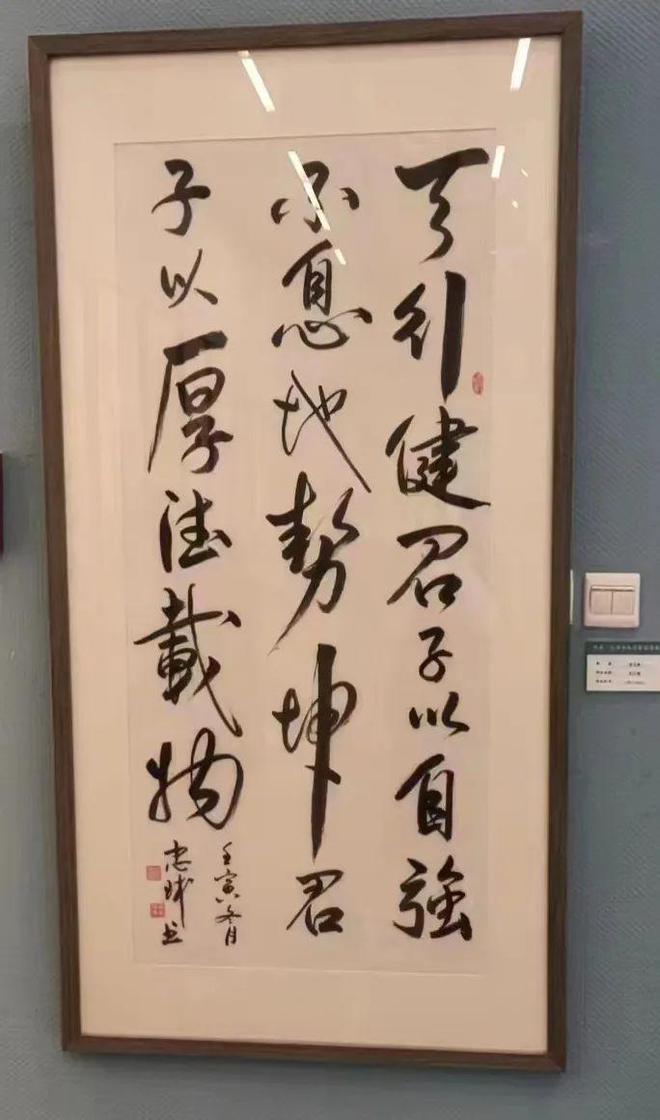 天行健君子以自強
不息地勢坤君
子以厚德載物
壬寅冬月
忠书